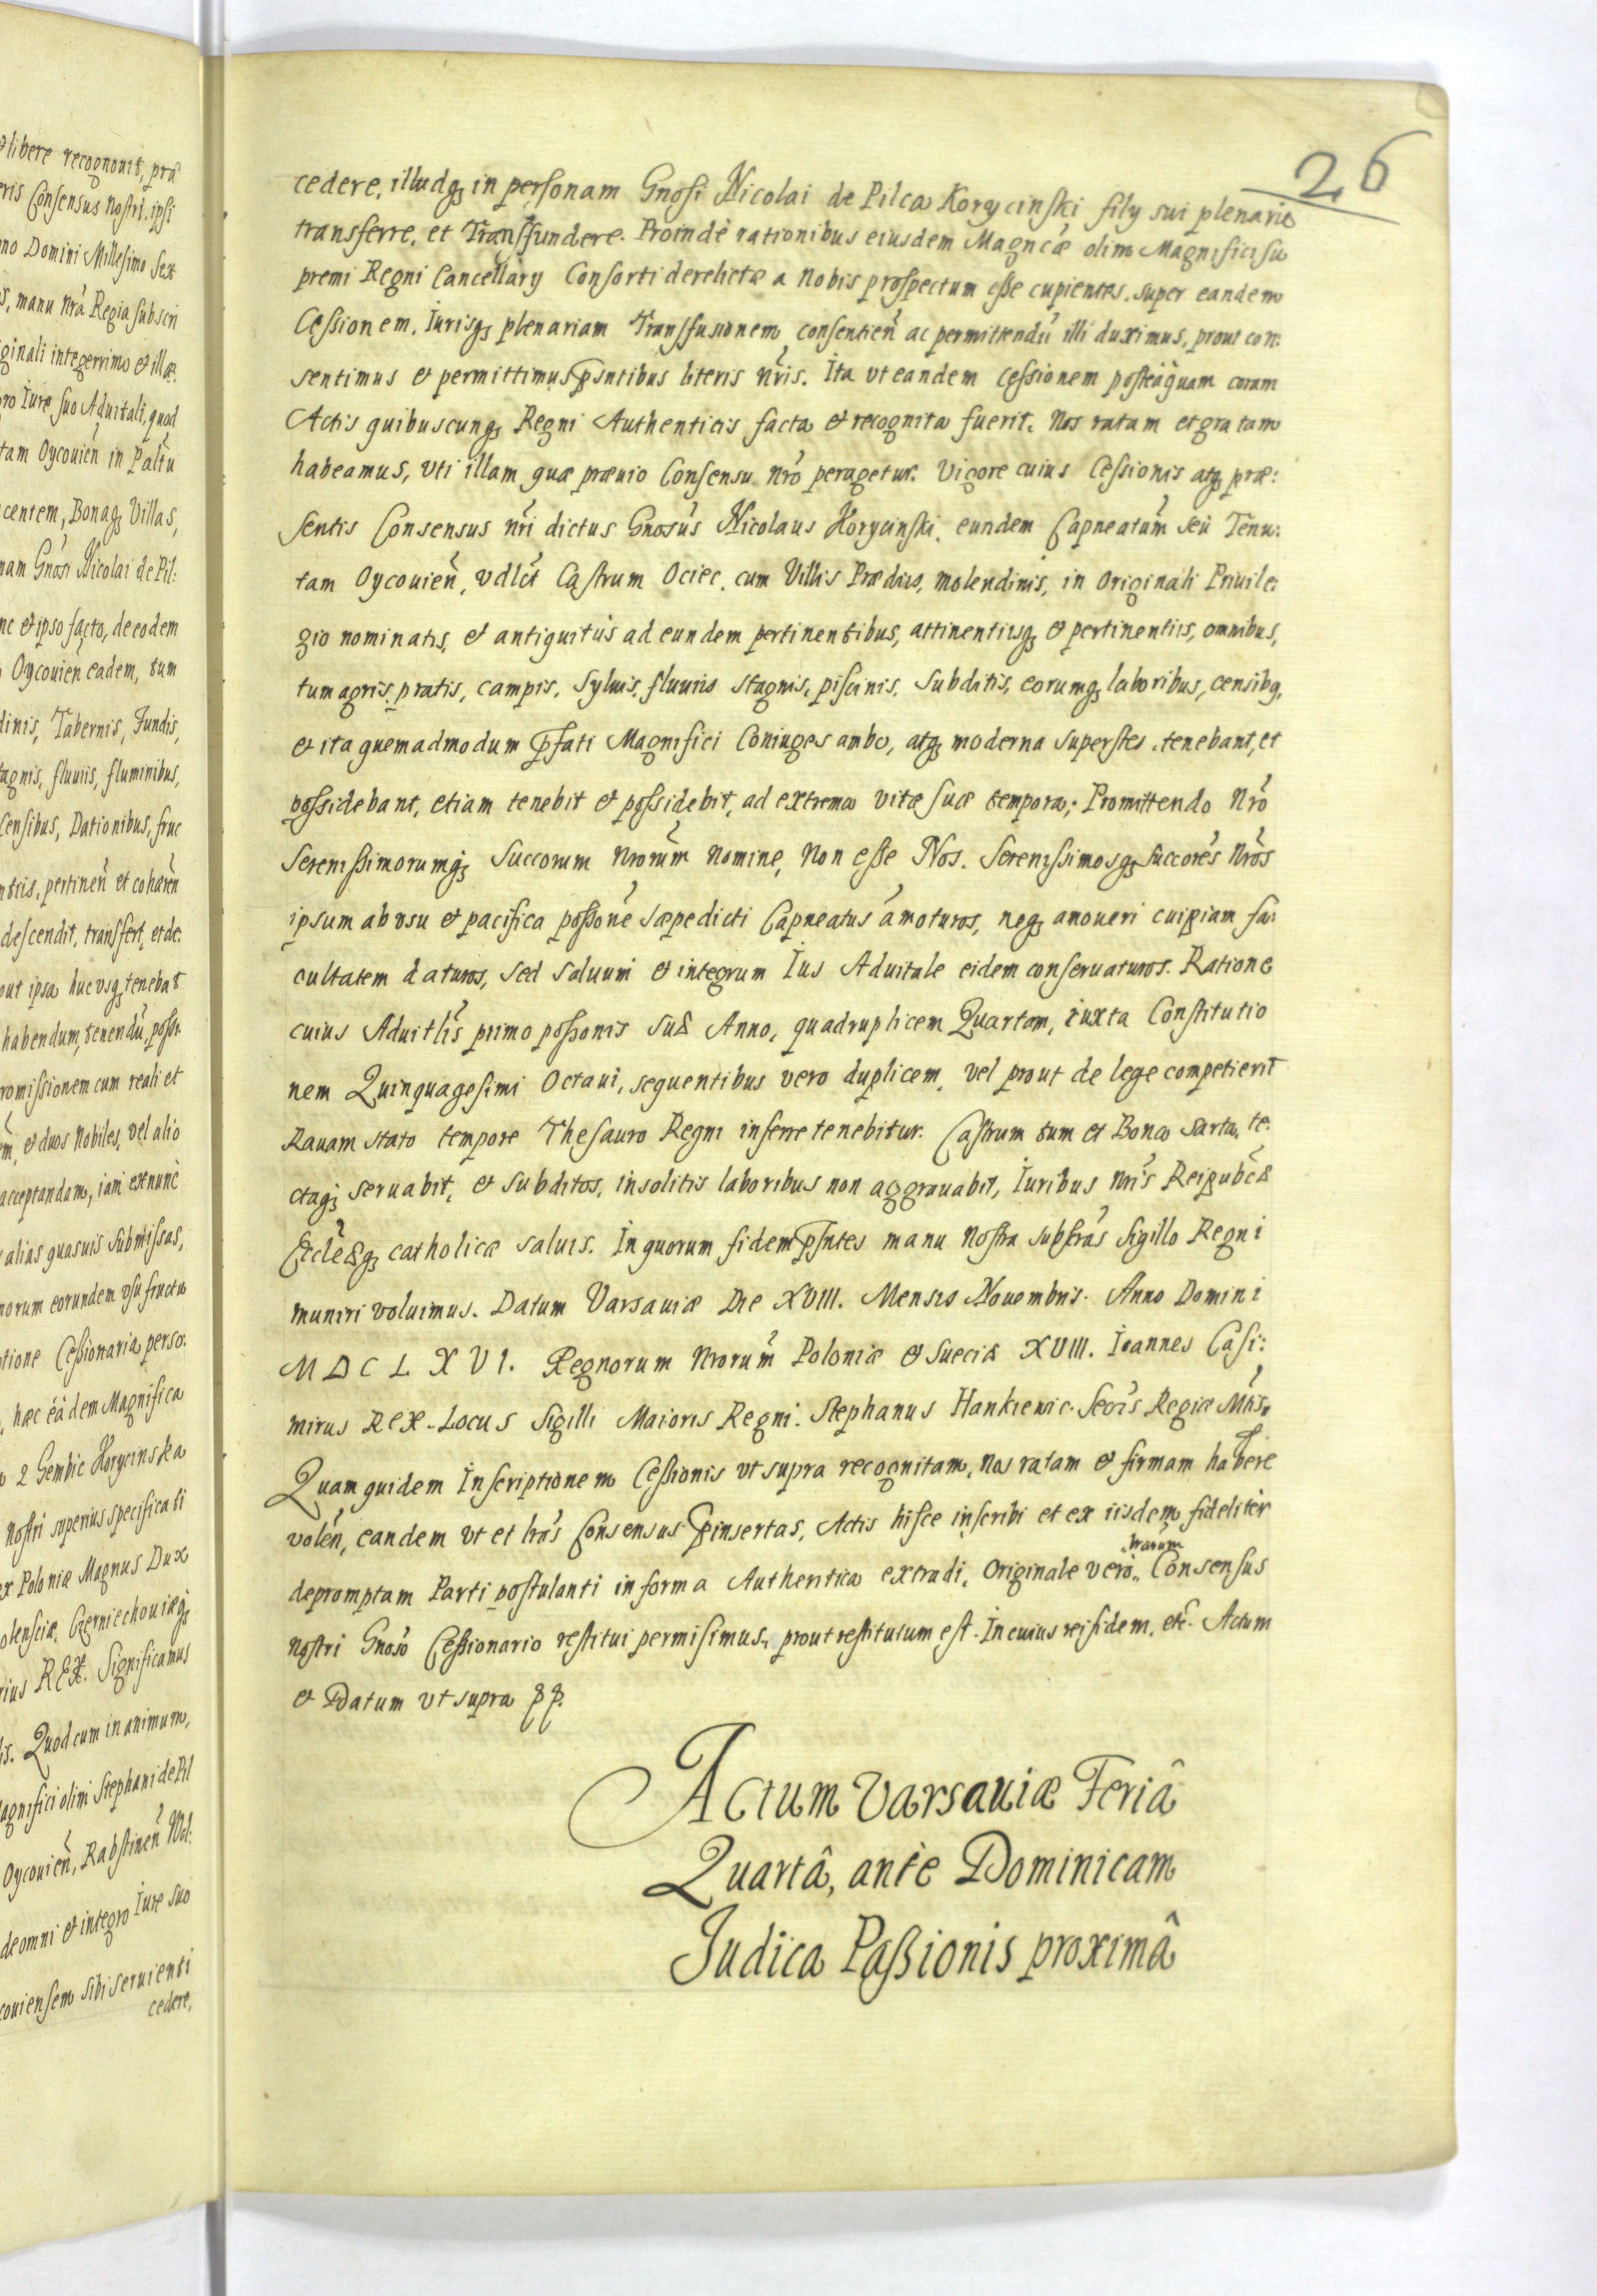 & libere recognouit, præ
eris Consensus Nostri. ipsi
no Domini Millesimo Sex
s, manu nrã Regia subscri
ginali integerrimo et illæ
ro Iure suo Aduitali, quod
tam Oycouień in Paltũ
centem, Bonaq; Villas,
nam Gnosi Nicolai de Pil:
nc et ipso facto, de eodem
Oycouień eadem, tum
dinis, Tabernis, Fundis,
tagnis, fluuiis, fluminibus,
Censibus, Dationibus, fruc
ntiis, pertineñ et cohæreñ
descendit, transfert, et de:
out ipsa huc vsq; tenebat
habendum, tenendũ, possi
romissionem cum reali et
em̃, et duos Nobiles, vel alio
acceptandam, iam ex nunc
alias quasuis submissas,
norum eorundem vsu fructu
tione Cessionaria perso:
, hæc eadem Magnifica
2 Gembic Korycinska
Nostri superius specificati
ex Poloniæ Magnus Dux
olensciæ, Czerniechouiæq;
rius REX. Significamus
is. Quod cum in animum,
agnifici olim Stephani de Pil
Oycouień, Rabstineñ Wol:
de omni et integro Iure suo
couiensem sibi seruienti
cedere,
26
cedere, illudq; in personam Gnosi Nicolai de Pilca Korycinski filÿ sui plenarie
transferre, et Transfundere. Proindè rationibus eiusdem Magncæ olim Magnifici su
premi Regni Cancellarÿ Consorti derelictæ a Nobis prospectum esse cupientes, super eandem
Cessionem, Iurisq; plenariam Transfusionem consentień ac permittendũ illi duximus, prout con:
sentimus et permittimus pṡntibus literis nr̃is. Ita vt eandem cessionem posteàquam coram
Actis quibuscunq; Regni Authenticis facta et recognita fuerit, Nos ratam et gratam
habeamus, vti illam quæ præuio Consensu nr̃o peragetur. Vigore cuius Cessionis atq; præ:
sentis Consensus nr̃i dictus Gnosús Nicolaus Korycinski, eundem Capneatum̃ seù Tenu:
tam Oycouień, vdlct̃ Castrum Ociec, cum Villis Prædiis, molendinis, in Originali Priuile:
gio nominatis, et antiquitùs ad eundem pertinentibus, attinentiisq; et pertinentiis, omnibus,
tum agris, pratis, campis, syluis, fluuiis stagnis, piscinis, subditis, eorumq; laboribus, censibq,
et ita quemadmodum pfati Magnifici Coniuges ambo, atq; moderna superstes, tenebant, et
possidebant, etiam tenebit et possidebit, ad extrema vitæ suæ tempora; Promittendo Nr̃o
Serenissimorumq; Succorum Nrorum̃ nomine, Non esse Nos. Serenissimosq; Succores̃ Nros̃
ipsum ab vsu et pacifica possone̋ sæpedicti Capneatus̃ amoturos, neq; amoueri cuipiam fa:
cultatem daturos, sed saluum et integrum Ius Aduitale eidem conseruaturos. Ratione
cuius Aduitlis̃ primo possonis suæ Anno, quadruplicem Quartam, iuxta Constitutio
nem Quinquagesimi Octaui, sequentibus vero duplicem, vel prout de lege competierit
Rauam stato tempore Thesauro Regni inferre tenebitur. Castrum tum et Bona sarta, te:
ctaq; seruabit, et subditos, insolitis laboribus non aggrauabit, Iuribus nris̃ Reipubcæ
Eccleæq; catholicæ saluis. In quorum fidem pṡntes manu Nostra subscras̃ Sigillo Regni
muniri voluimus. Datum Varsauiæ Die XVIII. Mensis Nouembris. Anno Domini
MDCLXVI. Regnorum Nrorum̃ Poloniæ et Sueciæ XVIII. Ioannes Casi:
mirus REX. Locus Sigilli Maioris Regni. Stephanus Hankiewic. Secris̃ Regiæ Mtis̃.
Quam quidem Inscriptionem Cessionis vt supra recognitam, nos ratam et firmam habere
voleñ, eandem vt et lrãs Consensus p̱insertas, Actis hisce inscribi et ex iisdem fideliter
depromptam Parti postulanti in forma Authentica extradi, Originale verò lrarum̃ Consensus
nostri Gnoso Cessionario restitui permisimus, prout restitutum est. In cuius rei fidem, etc. Actum
et Datum vt supra pp.
Actum Varsauiæ Feriâ
Quartâ, ante Dominicam
Judica Passionis proximâ